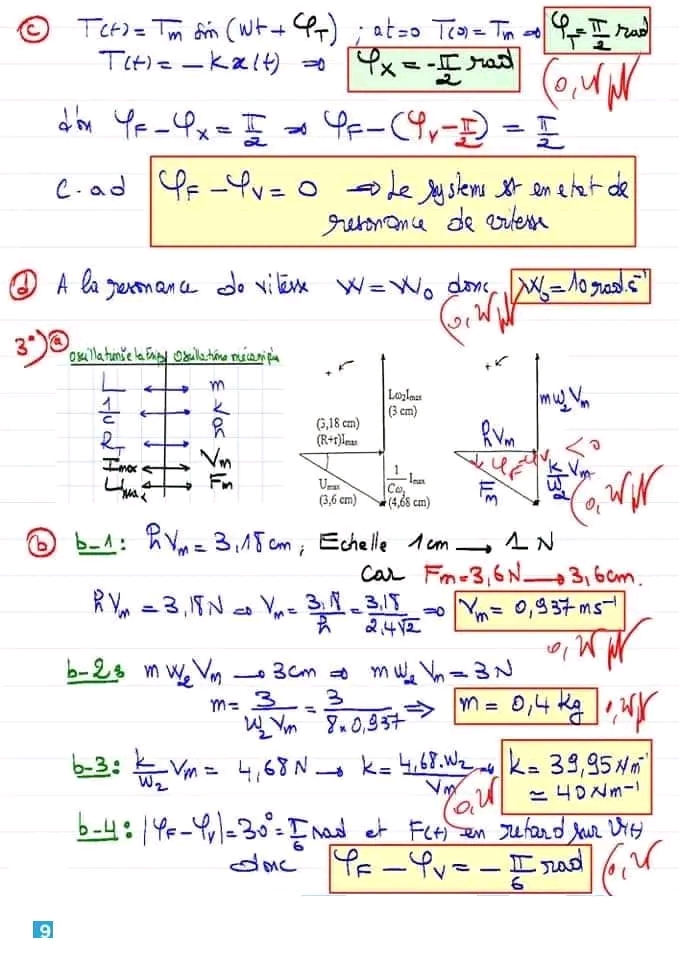 c) T(t) = Tm sin(wt + φT) ; at=0 T(0) = Tm ⇒ φT = π/2 rad
T(t) = -k x(t) ⇒ φx = -π/2 rad
d'où φF - φx = π/2 ⇒ φF - (φv - π/2) = π/2
c.ad φF - φv = 0 ⇒ Le systeme est en etat de
resonance de vitesse
d) A la resonance de vitesse W = W0 donc W0 = 10 rad.s⁻¹
3°) a)
Oscillations mécanique
L ↔ m
1/C ↔ k
RT ↔ h
Imax ↔ Vm
Umax ↔ Fm
+
Lω2Imax
(3 cm)
(3,18 cm)
(R+r)Imax
Umax
(3,6 cm)
1/Cω2 Imax
(4,68 cm)
+
m w2 Vm
h Vm
φF - φv < 0
Fm
k/w2 Vm
b) b-1: h Vm = 3,18 cm ; Echelle 1cm → 1 N
car Fm = 3,6 N → 3,6 cm.
h Vm = 3,18 N ⇒ Vm = 3,18/h = 3,18/2,4√2 ⇒ Vm = 0,937 ms⁻¹
b-2: m w2 Vm → 3cm ⇒ m w2 Vm = 3N
m = 3/W2 Vm = 3/8×0,937 ⇒ m = 0,4 kg
b-3: k/W2 Vm = 4,68 N → k = 4,68.W2/Vm → k = 39,95 N m⁻¹
≃ 40 N m⁻¹
b-4: |φF - φv| = 30° = π/6 rad et F(t) en retard sur V(t)
donc φF - φv = - π/6 rad
9